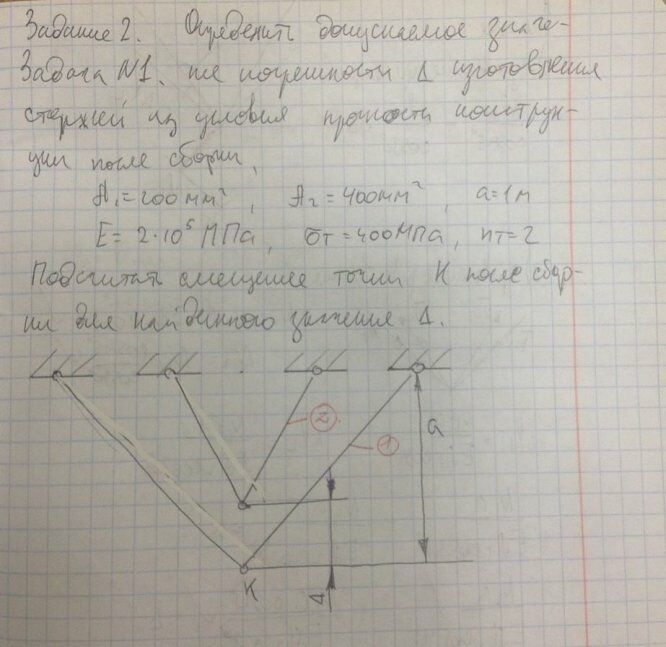 Задание 2. Определить допускаемое значе-
Задача №1. ние погрешности Δ изготовления
стержней из условия прочности конструк-
ции после сборки,
A₁=200мм², A₂=400мм², a=1м
E=2·10⁵МПа, σт=400МПа, nт=2
Подсчитать смещение точки K после сбор-
ки для найденного значения Δ.
2
1
a
K
Δ